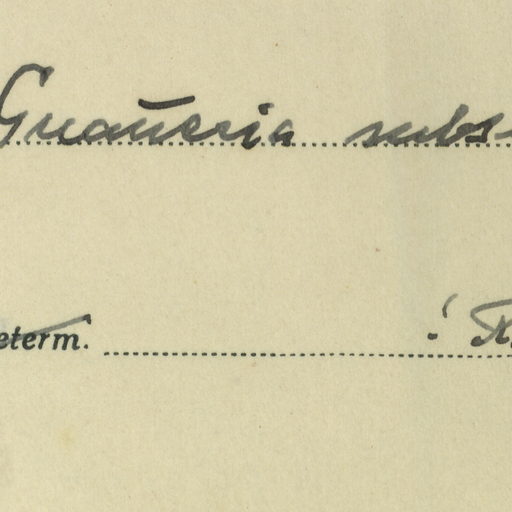 Guatteria subs
eterm. ! R